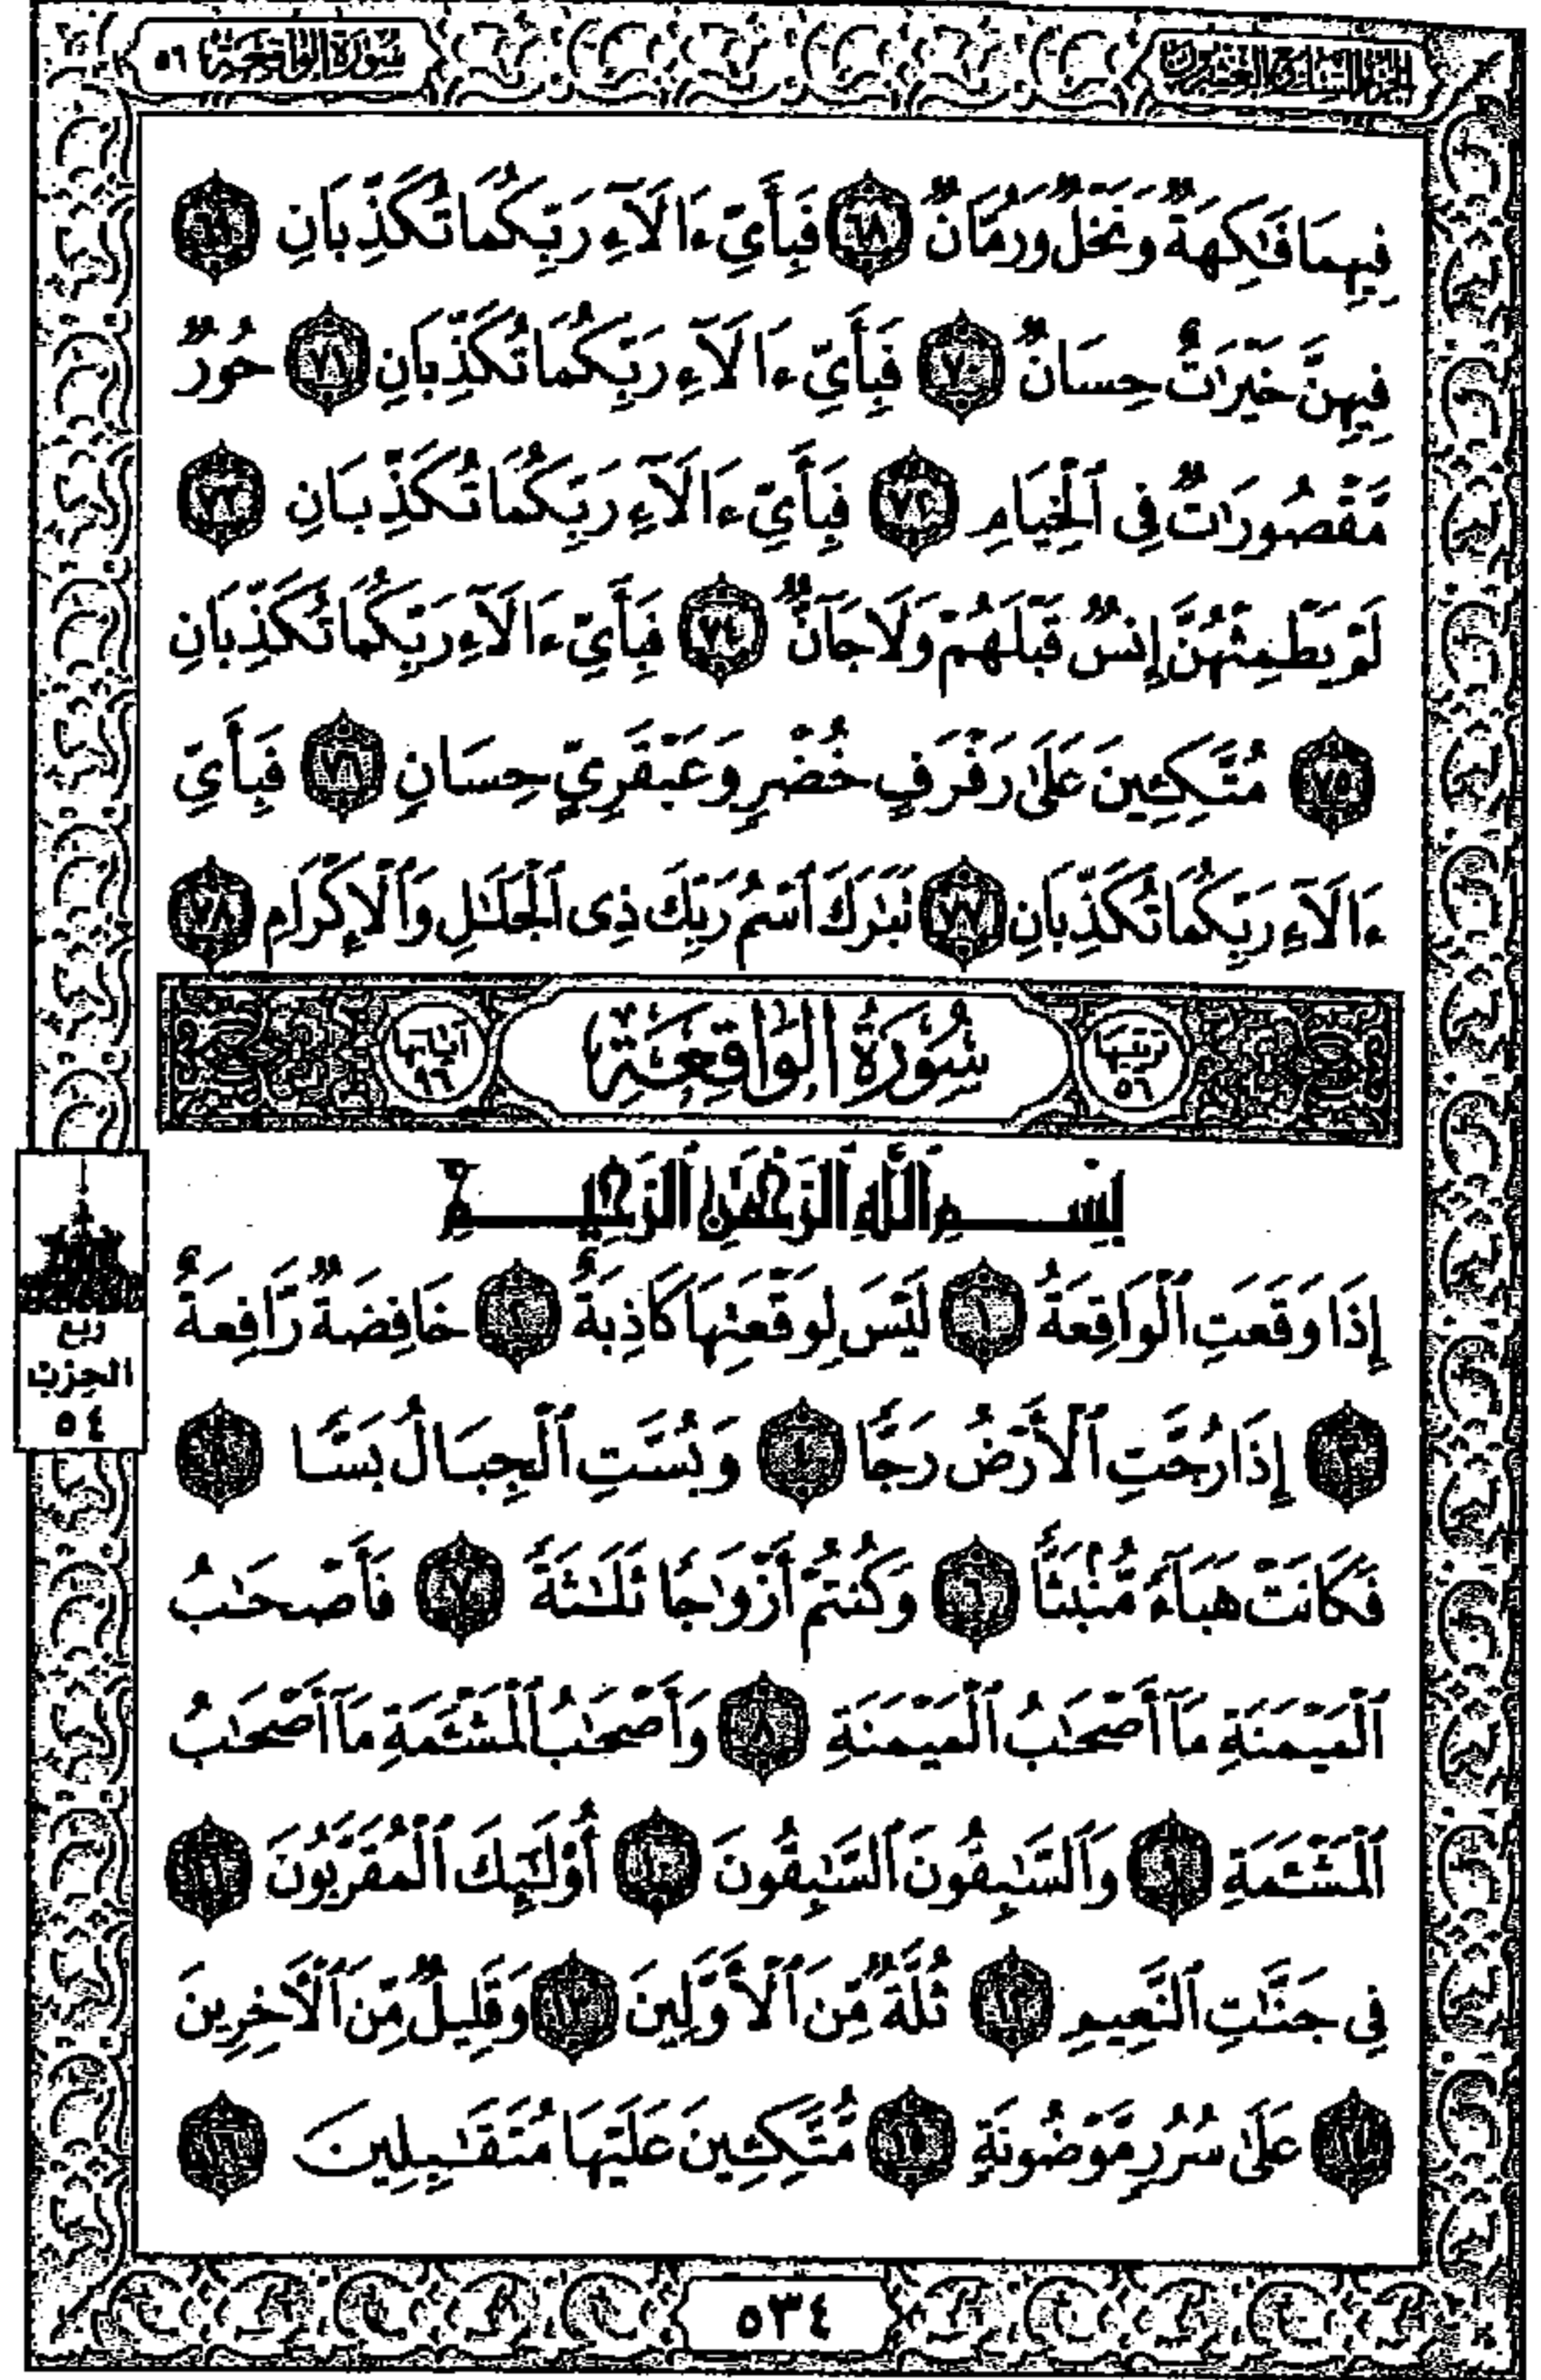 الجزء السابع والعشرون
سورة الواقعة ٥٦
فِيهِمَا فَٰكِهَةٌ وَنَخْلٌ وَرُمَّانٌ ٦٨ فَبِأَيِّ ءَالَآءِ رَبِّكُمَا تُكَذِّبَانِ ٦٩
فِيهِنَّ خَيْرَٰتٌ حِسَانٌ ٧٠ فَبِأَيِّ ءَالَآءِ رَبِّكُمَا تُكَذِّبَانِ ٧١ حُورٌ
مَّقْصُورَٰتٌ فِى ٱلْخِيَامِ ٧٢ فَبِأَيِّ ءَالَآءِ رَبِّكُمَا تُكَذِّبَانِ ٧٣
لَمْ يَطْمِثْهُنَّ إِنسٌ قَبْلَهُمْ وَلَا جَآنٌّ ٧٤ فَبِأَيِّ ءَالَآءِ رَبِّكُمَا تُكَذِّبَانِ
٧٥ مُتَّكِـِٔينَ عَلَىٰ رَفْرَفٍ خُضْرٍ وَعَبْقَرِيٍّ حِسَانٍ ٧٦ فَبِأَيِّ
ءَالَآءِ رَبِّكُمَا تُكَذِّبَانِ ٧٧ تَبَٰرَكَ ٱسْمُ رَبِّكَ ذِى ٱلْجَلَٰلِ وَٱلْإِكْرَامِ ٧٨
ترتيبها ٥٦ سُورَةُ الوَاقِعَةِ آياتها ٩٦
بِسْمِ ٱللَّهِ ٱلرَّحْمَٰنِ ٱلرَّحِيمِ
إِذَا وَقَعَتِ ٱلْوَاقِعَةُ ١ لَيْسَ لِوَقْعَتِهَا كَاذِبَةٌ ٢ خَافِضَةٌ رَّافِعَةٌ
٣ إِذَا رُجَّتِ ٱلْأَرْضُ رَجًّا ٤ وَبُسَّتِ ٱلْجِبَالُ بَسًّا ٥
فَكَانَتْ هَبَآءً مُّنۢبَثًّا ٦ وَكُنتُمْ أَزْوَٰجًا ثَلَٰثَةً ٧ فَأَصْحَٰبُ
ٱلْمَيْمَنَةِ مَآ أَصْحَٰبُ ٱلْمَيْمَنَةِ ٨ وَأَصْحَٰبُ ٱلْمَشْـَٔمَةِ مَآ أَصْحَٰبُ
ٱلْمَشْـَٔمَةِ ٩ وَٱلسَّٰبِقُونَ ٱلسَّٰبِقُونَ ١٠ أُو۟لَٰٓئِكَ ٱلْمُقَرَّبُونَ ١١
فِى جَنَّٰتِ ٱلنَّعِيمِ ١٢ ثُلَّةٌ مِّنَ ٱلْأَوَّلِينَ ١٣ وَقَلِيلٌ مِّنَ ٱلْءَاخِرِينَ
١٤ عَلَىٰ سُرُرٍ مَّوْضُونَةٍ ١٥ مُّتَّكِـِٔينَ عَلَيْهَا مُتَقَٰبِلِينَ ١٦
ربع
الحزب
٥٤
٥٣٤